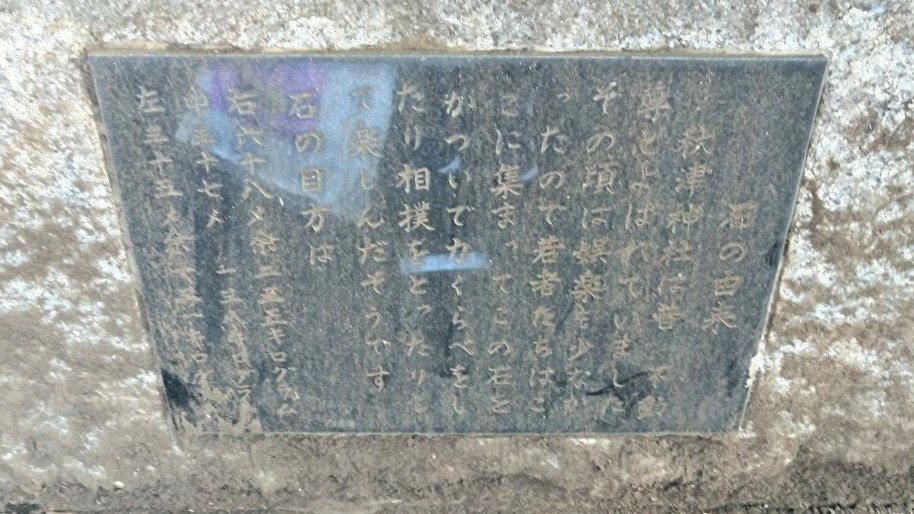 の由来
秋津神社は昔 不動
尊とよばれていました
その頃は娯楽も少なか
ったので若者たちはこ
こに集まってこの石を
かついで力くらべをし
たり相撲をとったりし
て楽しんだそうです
石の目方は
右六十八メ 約二五五キログラム
中三十七メ
左五十五メ